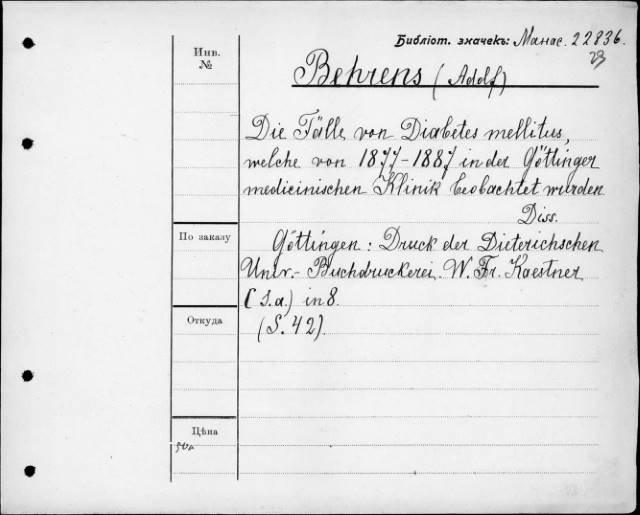 Библіот. значекъ: Манас. 22836.
23
Инв.
№
Behrens (Adolf)
Die Fälle von Diabetes mellitus,
welche von 1877-1887 in der Göttinger
medicinischen Klinik beobachtet wurden
Diss.
По заказу
Göttingen: Druck der Dieterichschen
Univ.- Buchdruckerei. W. Fr. Kaestner
[s.a.) in 8.
Откуда
(S. 42).
Цѣна